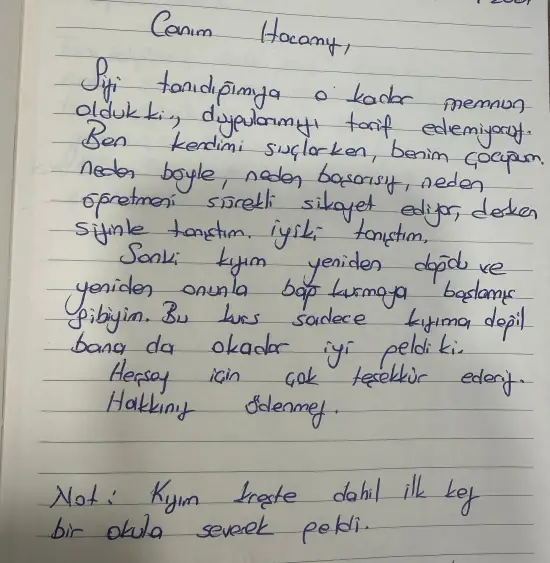 Canım Hocamız,
Sizi tanıdığımıza o kadar memnun
olduk ki.., duygularımızı tarif edemiyoruz.
Ben kendimi suçlarken, benim çocuğum
neden böyle, neden başarısız, neden
öğretmeni sürekli şikayet ediyor, derken
sizinle tanıştım. iyiki tanıştım.
Sanki kızım yeniden doğdu ve
yeniden onunla bağ kurmaya başlamış
gibiyim. Bu kurs sadece kızıma değil
bana da okadar iyi geldi ki..
Herşey için çok teşekkür ederiz.
Hakkınız ödenmez.
Not: Kızım kreşte dahil ilk kez
bir okula severek geldi.